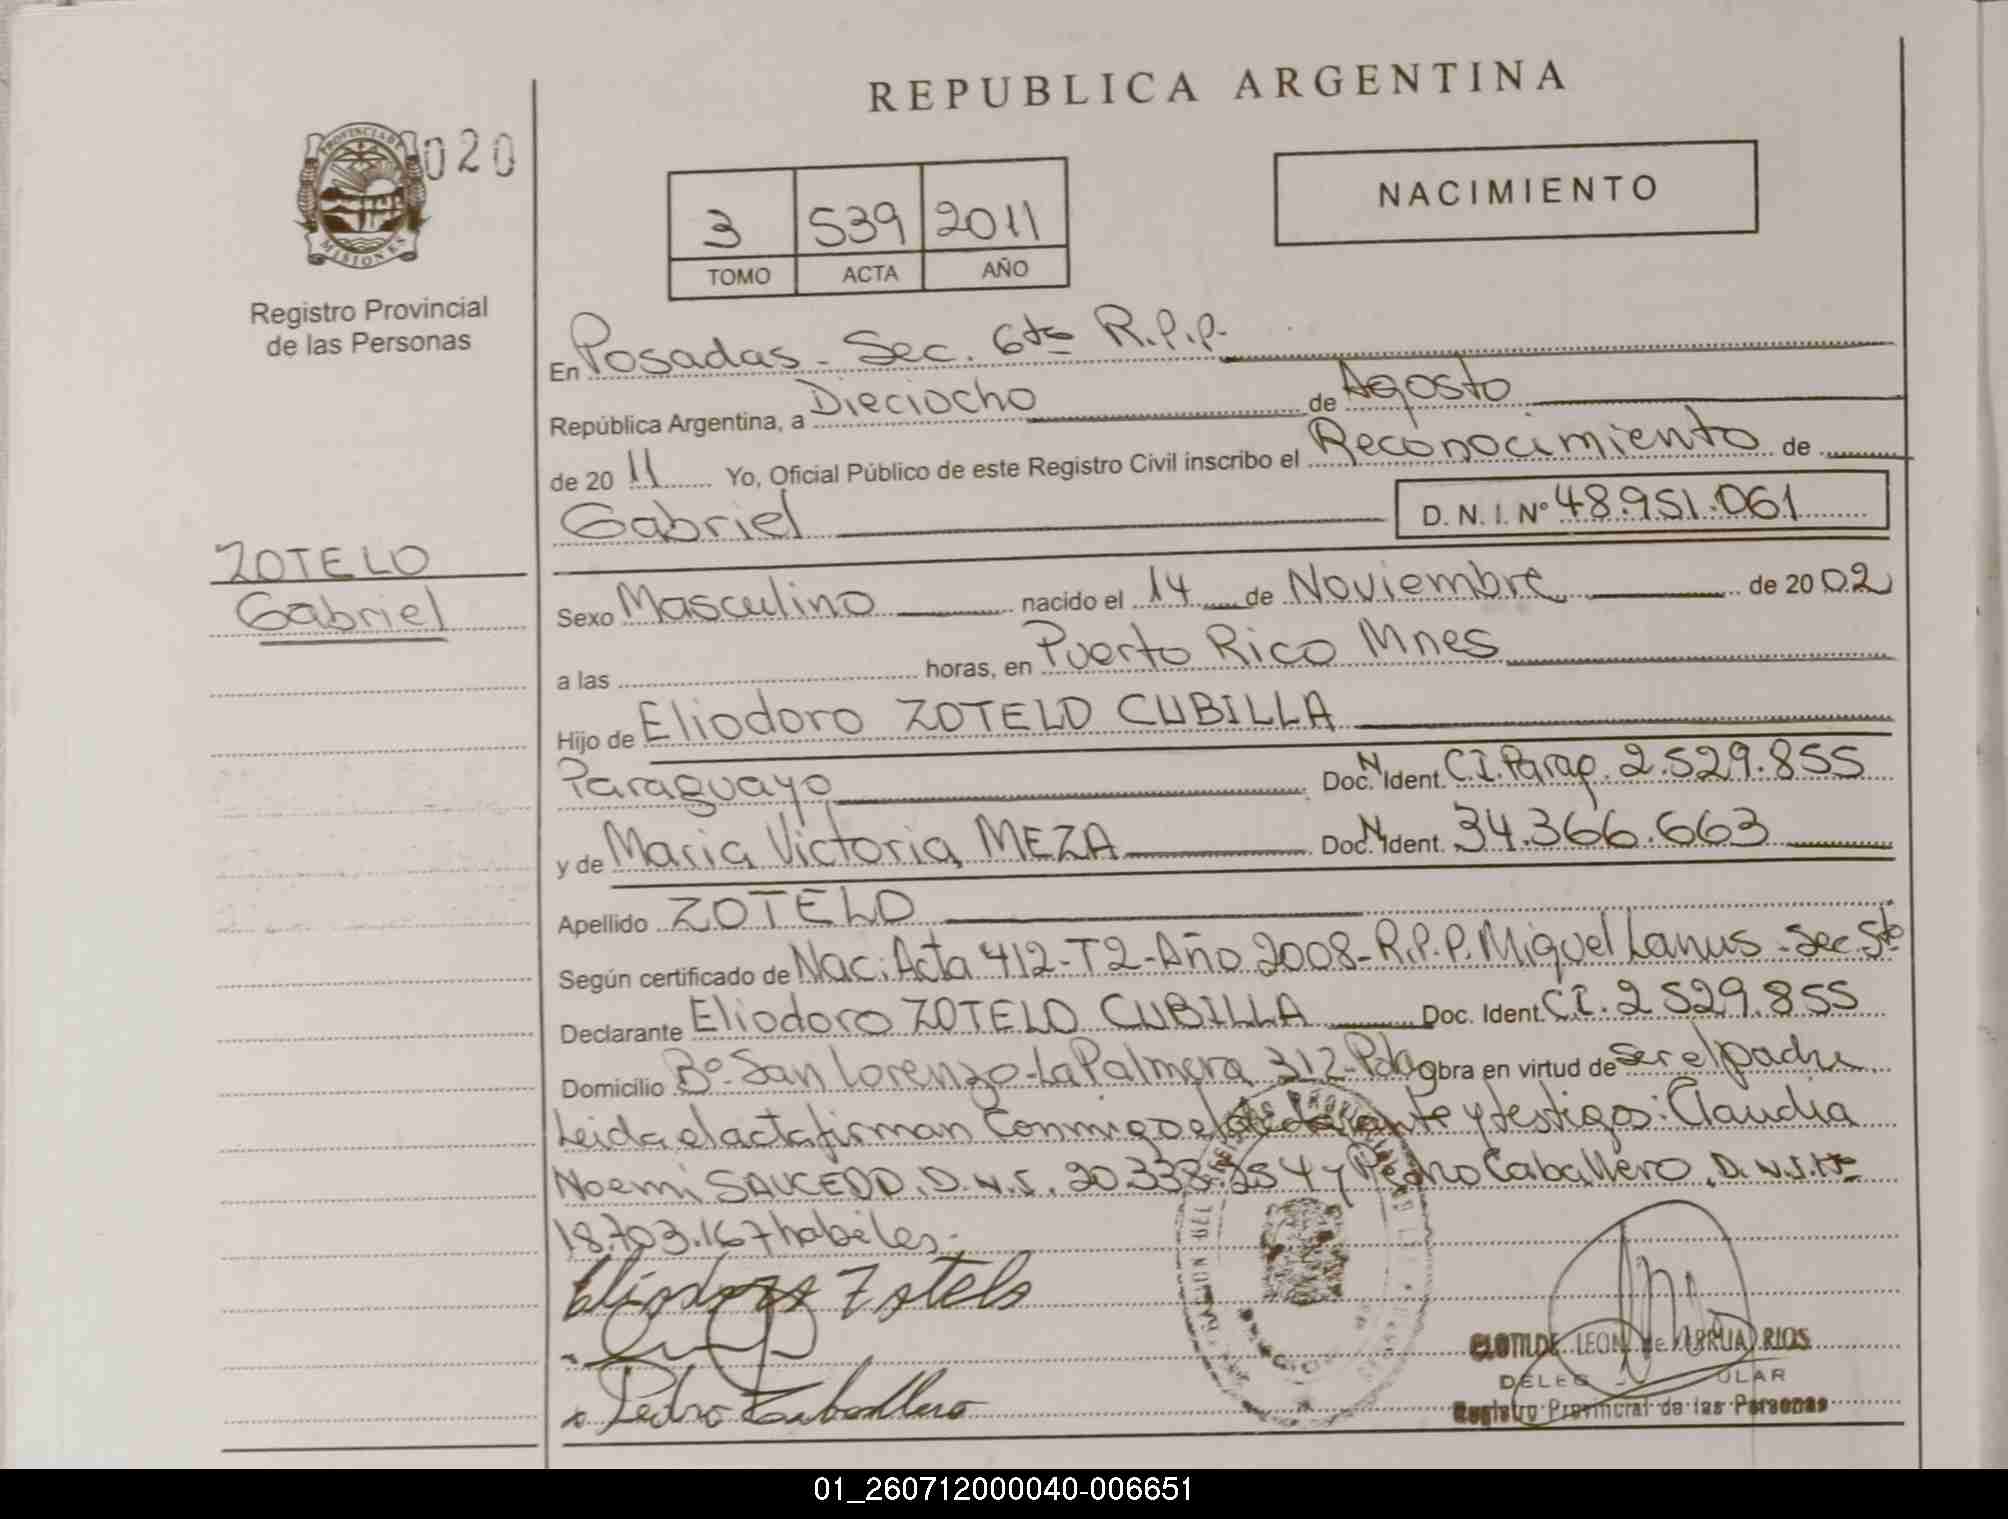 REPUBLICA ARGENTINA
PROVINCIA DE MISIONES
020
Registro Provincial
de las Personas
NACIMIENTO
3 539 2011
TOMO ACTA AÑO
En Posadas - Sec. 6ta R.P.P.-
República Argentina, a Dieciocho de Agosto
de 2011 Yo, Oficial Público de este Registro Civil inscribo el Reconocimiento de
Gabriel D. N. I. Nº 48.951.061
ZOTELO
Gabriel
Sexo Masculino nacido el 14 de Noviembre de 2002
a las horas, en Puerto Rico Mnes
Hijo de Eliodoro ZOTELO CUBILLA
Paraguayo Doc. N Ident. C.I. Parag. 2.529.855
y de Maria Victoria MEZA Doc. N Ident. 34.366.663
Apellido ZOTELO
Según certificado de Nac: Acta 412-T2-Año 2008-R.P.P. Miguel Lanus - Sec. 5ta
Declarante Eliodoro ZOTELO CUBILLA Doc. Ident. C.I. 2.529.855
Domicilio Bº San Lorenzo-La Palmera 312- Obra en virtud de ser el padre
Leida el acta firman conmigo el declarante y testigos: Claudia
Noemi SAUCEDO, D.N.I. 20.338.254 y Pedro Caballero, D.N.I. Nº
18.703.167 habiles.-
Eliodoro Zotelo
Pedro Caballero
CLOTILDE LEON de ARRUA RIOS
Registro Provincial de las Personas
01_260712000040-006651